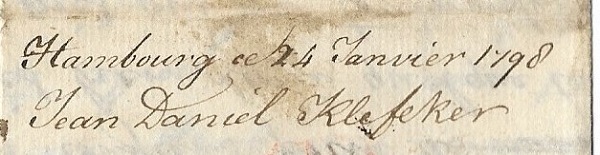 Hambourg ce 24 Janvier 1798
Jean Daniel Klefeker